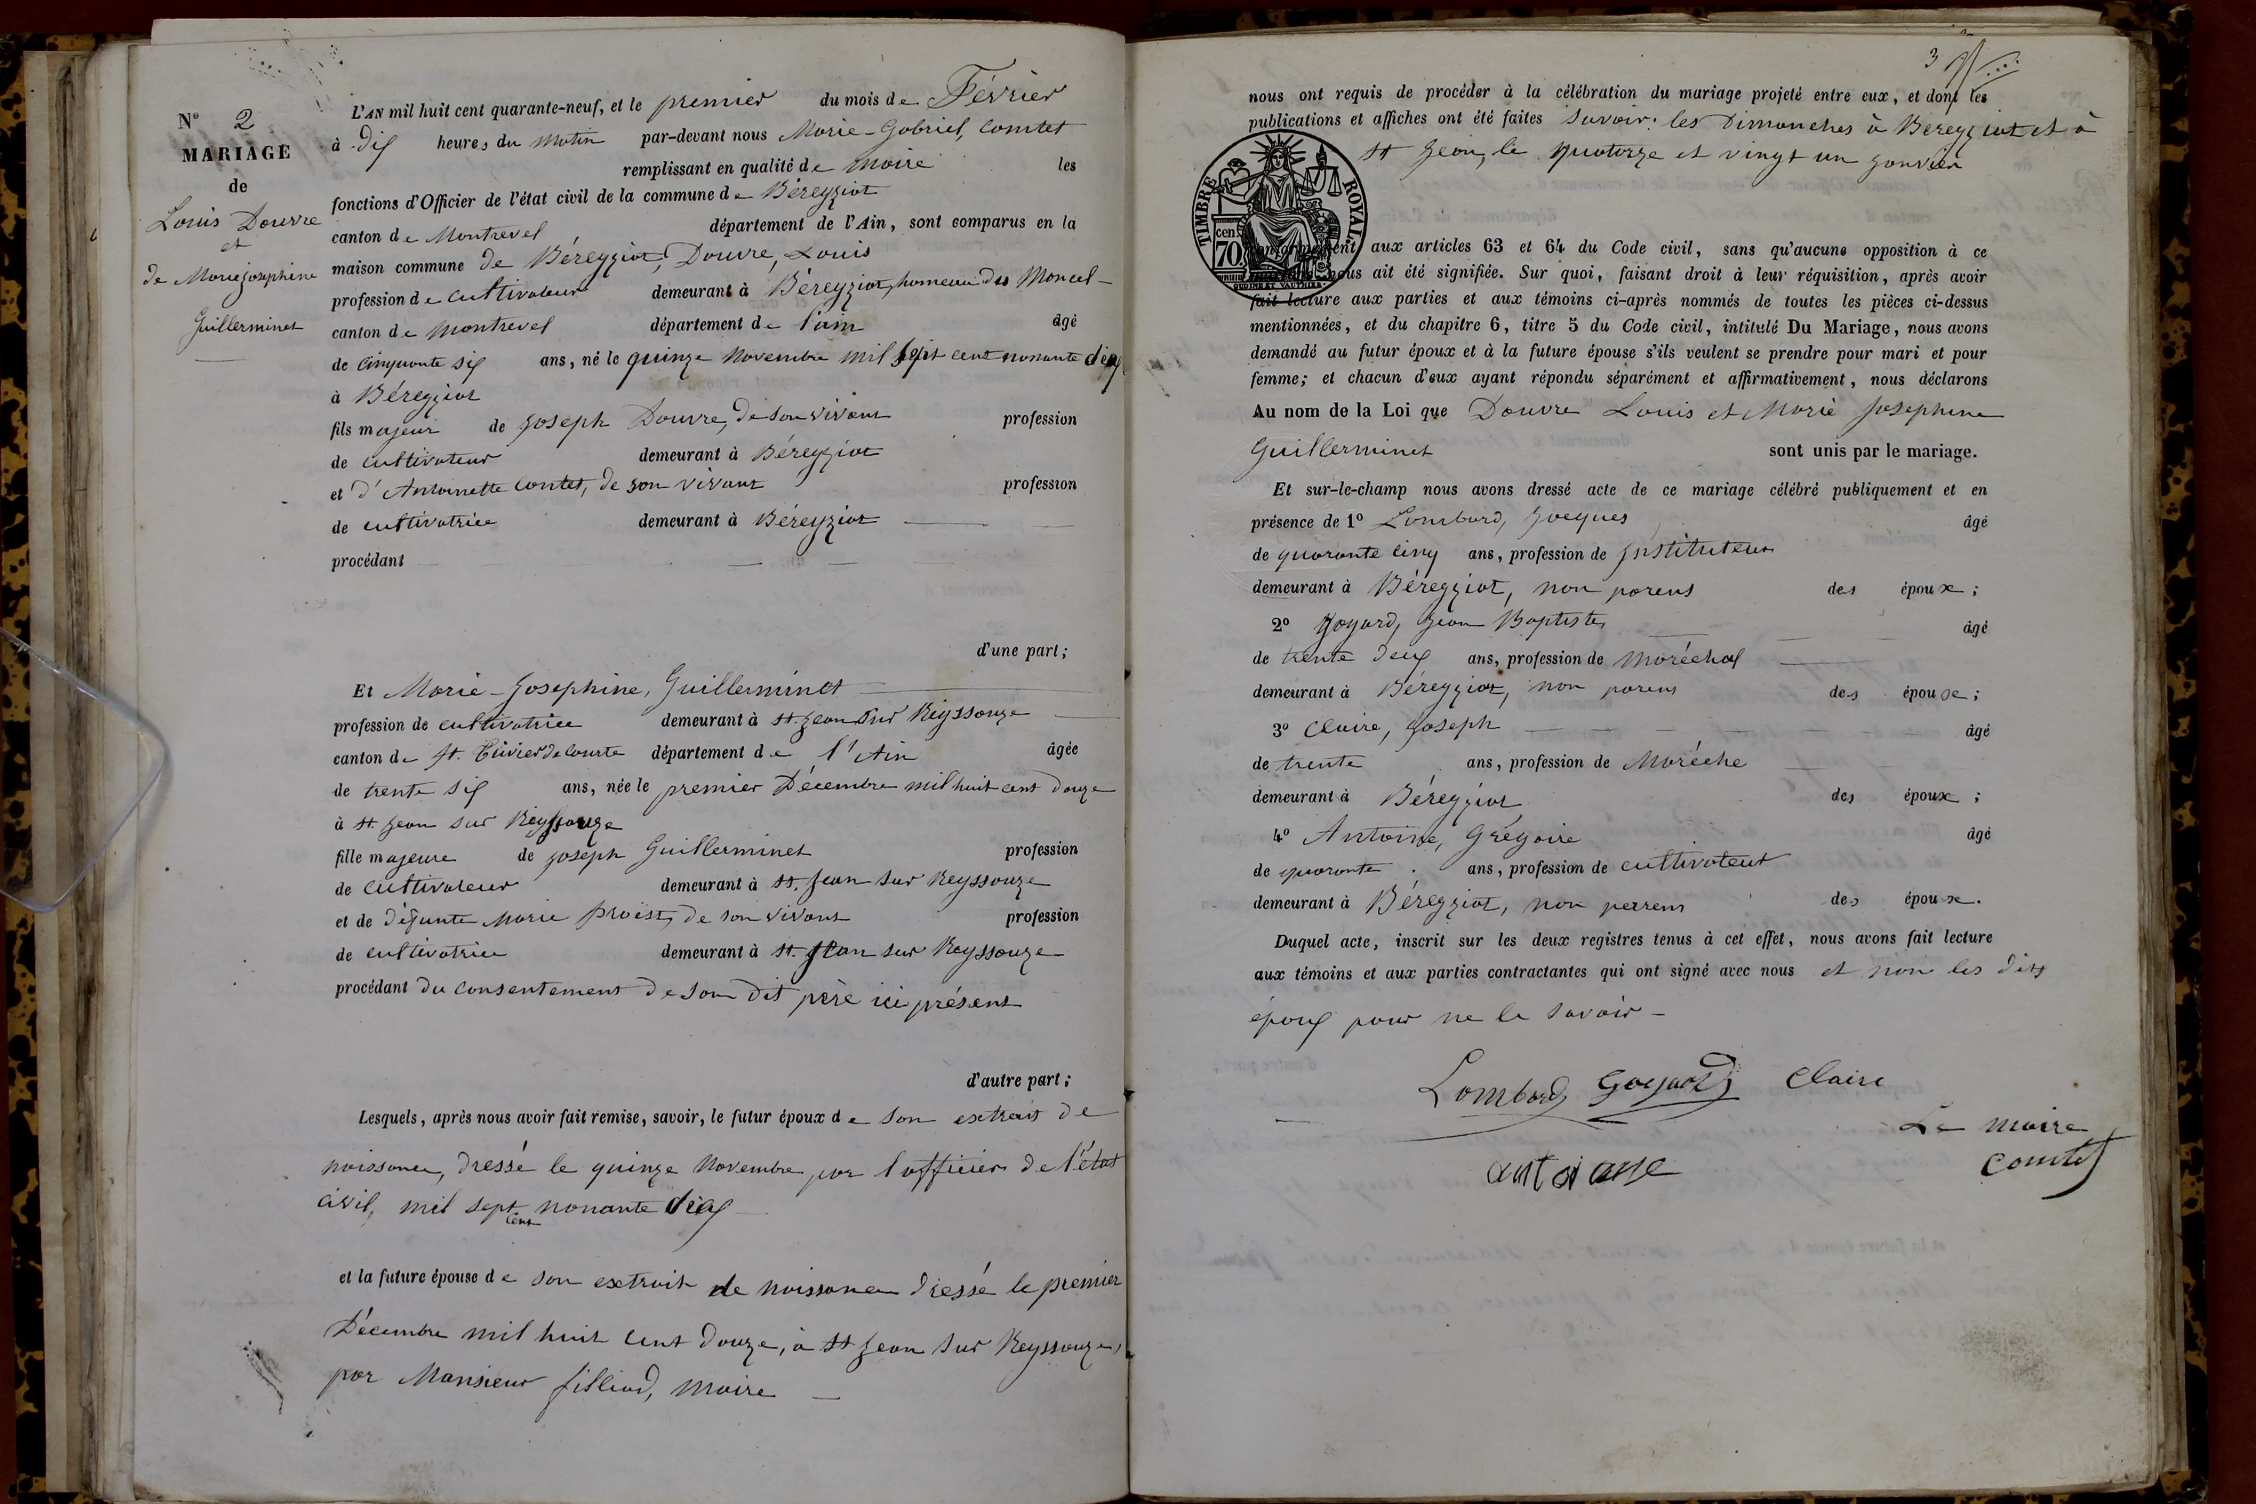 N° 2
MARIAGE
de
Louis Douvre
et
de Marie Josephine
Guillerminet
L'AN mil huit cent quarante-neuf, et le premier du mois de Février
à dix heures du matin par-devant nous Marie-Gabriel, Comtet
remplissant en qualité de maire les
fonctions d'Officier de l'état civil de la commune de Béreyziat
canton de Montrevel département de l'Ain, sont comparus en la
maison commune de Béreyziat, Douvre, Louis
profession de cultivateur demeurant à Béreyziat, hameau du Moncel-
canton de Montrevel département de l'ain âgé
de cinquante six ans, né le quinze Novembre mil sept cent nonante
à Béreyziat
fils majeur de Joseph Douvre, de son vivant profession
de cultivateur demeurant à Béreyziat
et d'Antoinette Contet, de son vivant profession
de cultivatrice demeurant à Béreyziat
procédant
d'une part;
Et Marie-Josephine, Guillerminet
profession de cultivatrice demeurant à st. Jean sur Reyssouze
canton de st. Trivier de Courte département de l'Ain âgée
de trente six ans, née le premier Décembre mil huit cent douze
à st. Jean sur Reyssouze
fille majeure de Joseph Guillerminet profession
de cultivateur demeurant à st. Jean sur Reyssouze
et de défunte Marie proist, de son vivant profession
de cultivatrice demeurant à st. Jean sur Reyssouze
procédant du consentement de son dit père ici présent
d'autre part;
Lesquels, après nous avoir fait remise, savoir, le futur époux de son extrait de
naissance, dressé le quinze Novembre, par l'officier de l'état
civil, mil sept cent nonante
et la future épouse de son extrait de naissance dressé le premier
Décembre mil huit cent douze, à st Jean sur Reyssouze,
par Monsieur filliod, maire
3
nous ont requis de procéder à la célébration du mariage projeté entre eux, et dont les
publications et affiches ont été faites savoir: les Dimanches à Béreyziat et à
st Jean, le quatorze et vingt un janvier
TIMBRE ROYAL
70 cen.
conformément aux articles 63 et 64 du Code civil, sans qu'aucune opposition à ce
mariage nous ait été signifiée. Sur quoi, faisant droit à leur réquisition, après avoir
fait lecture aux parties et aux témoins ci-après nommés de toutes les pièces ci-dessus
mentionnées, et du chapitre 6, titre 5 du Code civil, intitulé Du Mariage, nous avons
demandé au futur époux et à la future épouse s'ils veulent se prendre pour mari et pour
femme; et chacun d'eux ayant répondu séparément et affirmativement, nous déclarons
Au nom de la Loi que Douvre Louis et Marie Josephine
Guillerminet sont unis par le mariage.
Et sur-le-champ nous avons dressé acte de ce mariage célébré publiquement et en
présence de 1° Lombard, Jacques âgé
de quarante cinq ans, profession de Instituteur
demeurant à Béreyziat, non parens des époux;
2° Goyard, Jean Baptiste, âgé
de trente deux ans, profession de maréchal
demeurant à Béreyziat, non parens des époux;
3° Claire, Joseph âgé
de trente ans, profession de Maréche
demeurant à Béreyziat des époux;
4° Antoine, Grégoire âgé
de quarante ans, profession de cultivateur
demeurant à Béreyziat, non perrens des époux.
Duquel acte, inscrit sur les deux registres tenus à cet effet, nous avons fait lecture
aux témoins et aux parties contractantes qui ont signé avec nous et non les dits
époux pour ne le savoir-
Lombard Goyard Claire
Le maire
antoine Comtet